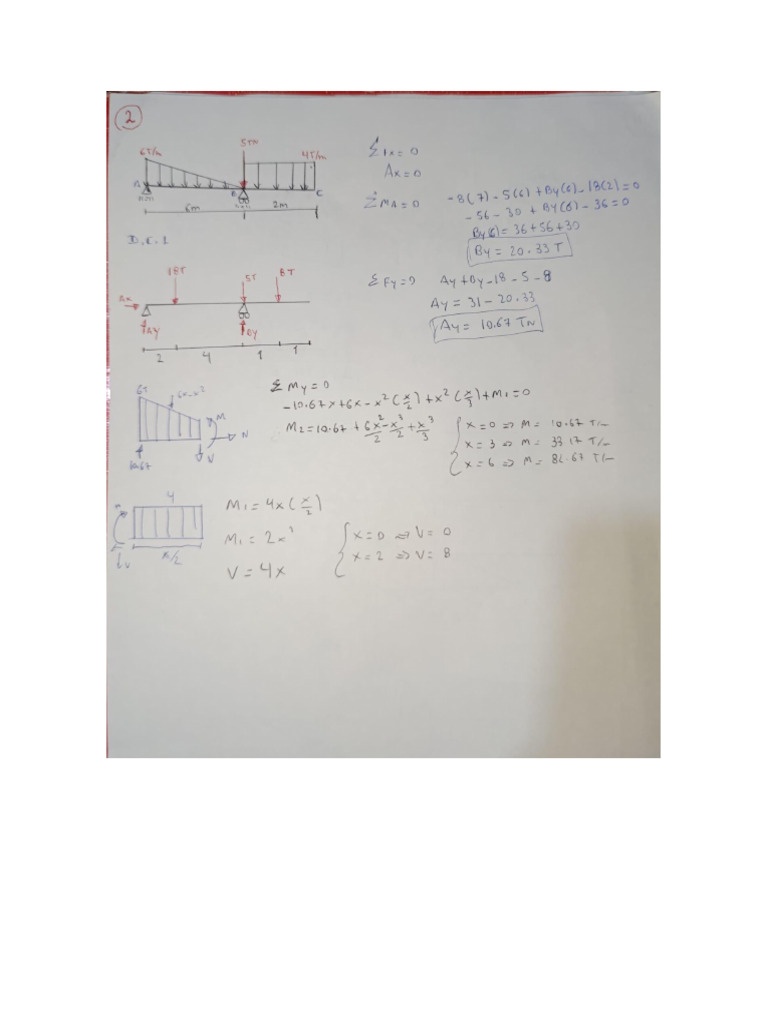 2
5TN
6T/m
4T/m
A
B
C
6m
2m
D.C.1
ΣFx=0
Ax=0
ΣMA=0
-8(7)-5(6)+By(6)-18(2)=0
-56-30+By(6)-36=0
By(6)=36+56+30
By=20.33T
18T
5T
8T
Ax
Ay
By
2 4 1 1
ΣFy=0
Ay+By-18-5-8
Ay=31-20.33
Ay=10.67 TN
6T
6x-x²
M
N
V
10.67
ΣMy=0
-10.67x+6x-x²(x/2)+x²(x/3)+M1=0
M2=10.67+6x²/2-x³/2+x³/3
x=0 ⇒ M= 10.67 T/m
x=3 ⇒ M= 33.17 T/m
4
V
x/2
M1=4x(x/2)
M1=2x²
V=4x
x=0 ⇒ V=0
x=2 ⇒ V=8